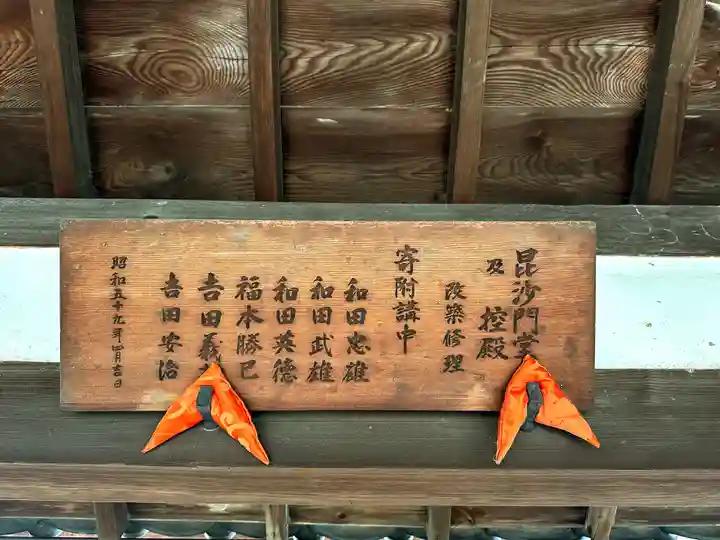 毘沙門堂
及 控殿
改築修理
寄附講中
和田忠雄
和田武雄
和田英徳
福本勝巳
𠮷田義
𠮷田安治
昭和五十九年四月吉日